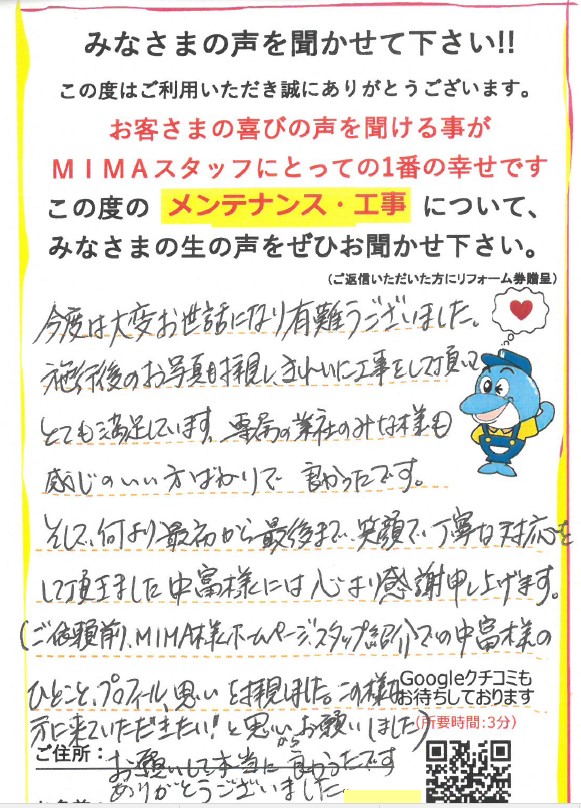 みなさまの声を聞かせて下さい!!
この度はご利用いただき誠にありがとうございます。
お客さまの喜びの声を聞ける事が
MIMAスタッフにとっての1番の幸せです
この度の メンテナンス・工事 について、
みなさまの生の声をぜひお聞かせ下さい。
(ご返信いただいた方にリフォーム券贈呈)
今度は大変お世話になり有難うございました。
施行後のお写真も拝視し、きれいに工事をして頂いて
とても満足しています。専属の業社のみな様も
感じのいい方ばかりで 良かったです。
そして、何より最初から最後まで、笑顔で、丁寧な対応を
して頂きました中富様には心より感謝申し上げます。
(ご依頼前、MIMA様ホームページ、スタッフ紹介での中富様の
ひとこと、プロフィール、思いを拝視しました。この様な
方に来ていただきたい!と思い、お願いしました)
Googleクチコミも
お待ちしております
(所要時間:3分)
ご住所:
お願いして本当に良かったです
から
ありがとうございました。